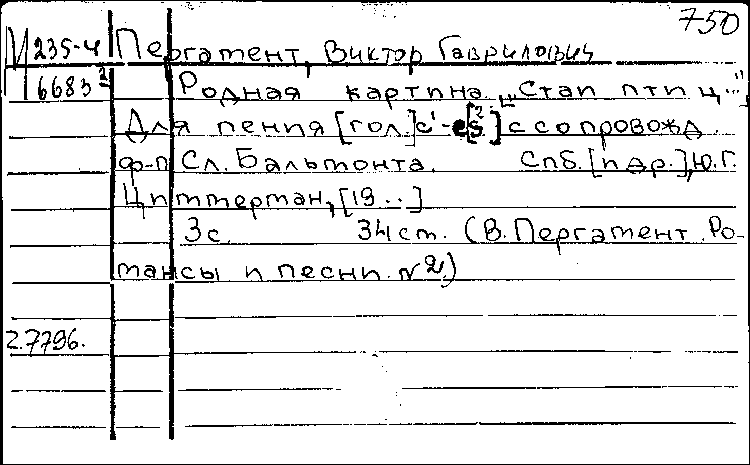 750
М 235-4 Пергамент, Виктор Гаврилович
6683² Родная картина. [„Стаи птиц..."]
Для пения [гол.] c¹-es² с сопровожд.
ф-п Сл. Бальмонта. Спб. [и др.], Ю.Г.
Циммерман, [19..]
3с. 34 см. (В. Пергамент. Ро-
мансы и песни. №2)
2.7796.